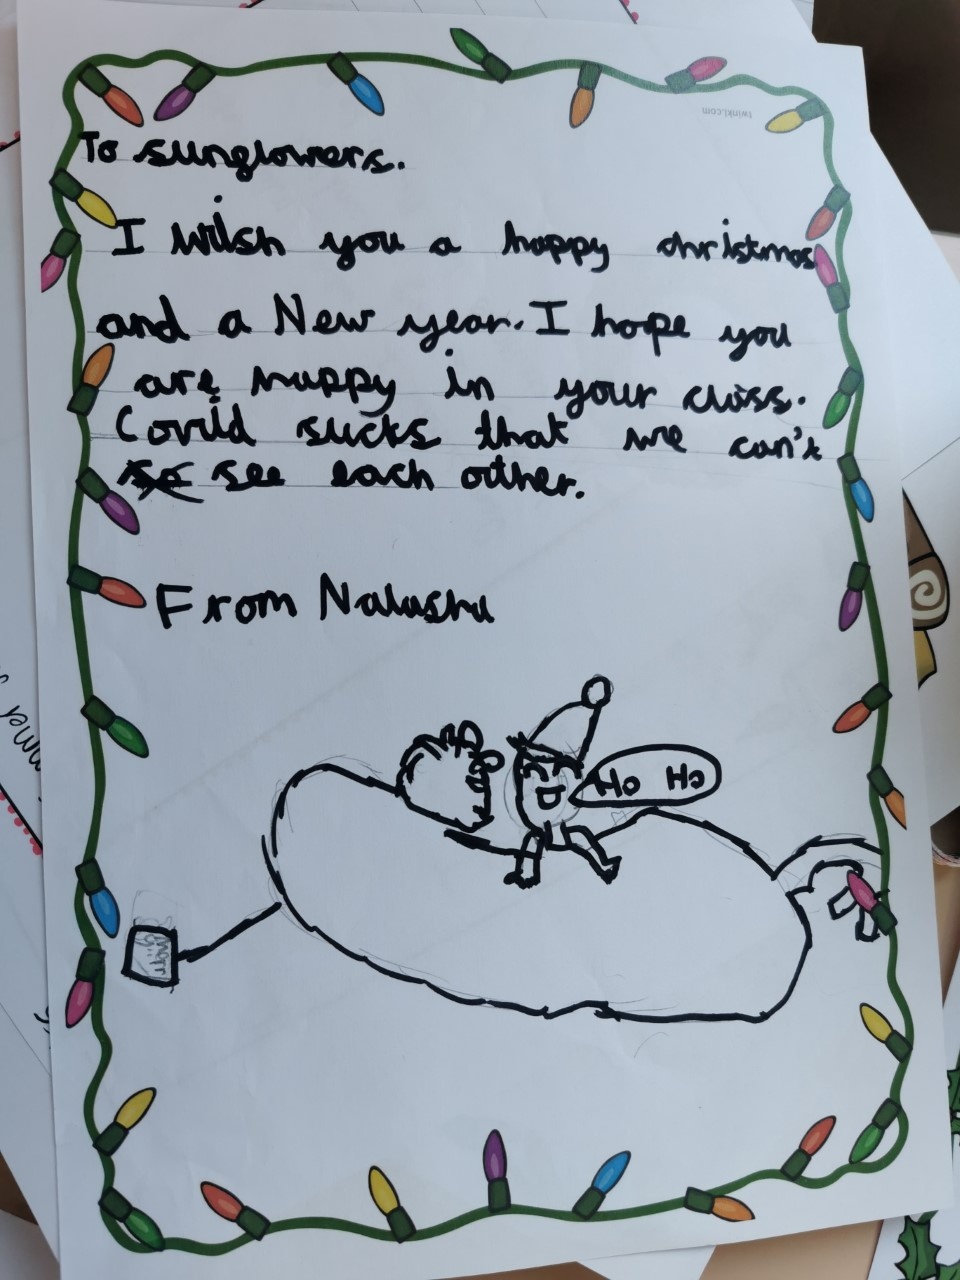 twinkl.com
To sunflowers.
I wish you a happy christmas
and a New year. I hope you
are happy in your class.
Covid sucks that we can't
so see each other.
From Natasha
Ho Ho